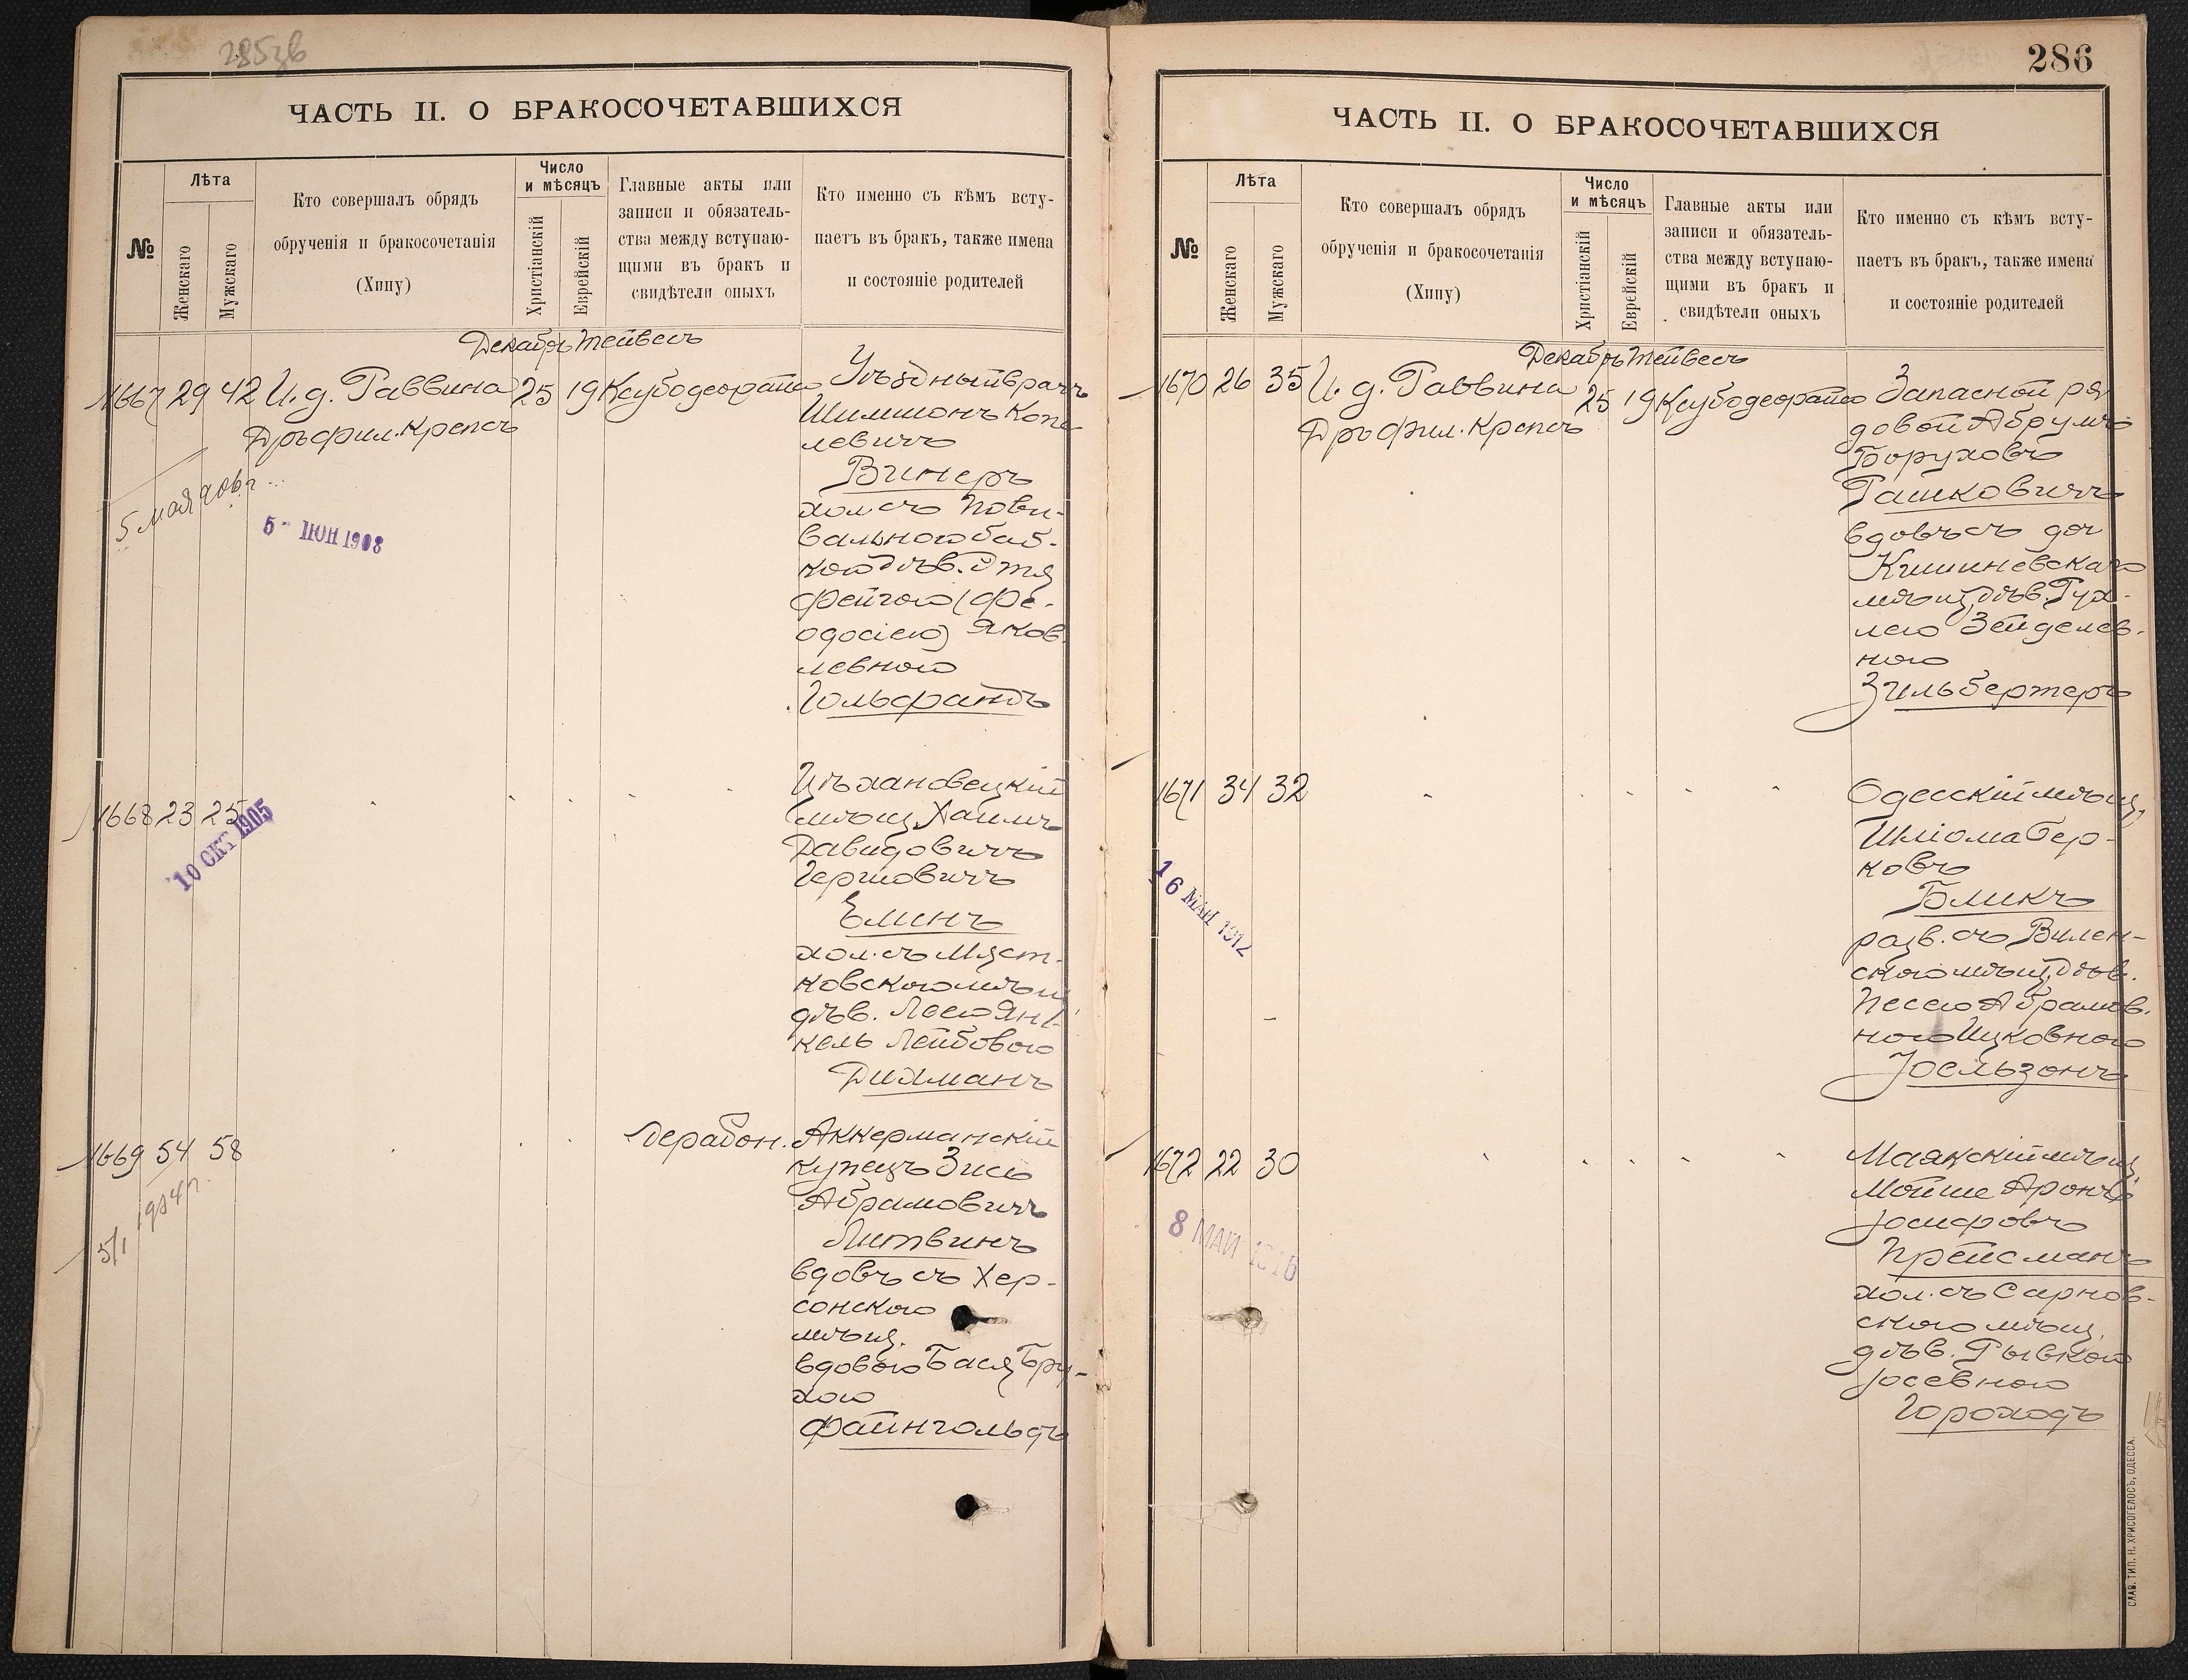 285зв
ЧАСТЬ II. О БРАКОСОЧЕТАВШИХСЯ
№
Лѣта
Женскаго
Мужскаго
Кто совершалъ обрядъ
обрученія и бракосочетанія
(Хипу)
Число
и мѣсяцъ
Христіанскій
Еврейскій
Главные акты или
записи и обязатель-
ства между вступаю-
щими въ бракъ и
свидѣтели оныхъ
Кто именно съ кѣмъ всту-
паетъ въ бракъ, также имена
и состояніе родителей
Декабрь Тейвесъ
1667 29 42 И. д. Раввина 25 19 Ксубодеорайсо
Дръ фил. Крепсъ
5 мая
5 - ІЮН 1908
Уѣздный врачъ
Шимшонъ Копе-
левичъ
Винеръ
хол. съ Пови-
вальною баб-
кою дѣв. Этя
Фейгою (Фе-
одосіею) Яков-
левною
Гольфандъ
1668 23 25
10 ОКТ 1905
Цѣхановецкій
мѣщ. Хаимъ
Давидовичъ
Гершовичъ
Елинъ
хол. съ Мяст-
ковскою мѣщ.
дѣв. Леею Ян-
кель Лейбовою
Дихманъ
1669 54 58 Дерабон.
5/1 1914 г.
Аккерманскій
купецъ Зись
Абрамовичъ
Литвинъ
вдовъ съ Хер-
сонскою
мѣщ.
вдовою Бася Бру-
хою
Файнгольдъ
286
ЧАСТЬ II. О БРАКОСОЧЕТАВШИХСЯ
№
Лѣта
Женскаго
Мужскаго
Кто совершалъ обрядъ
обрученія и бракосочетанія
(Хипу)
Число
и мѣсяцъ
Христіанскій
Еврейскій
Главные акты или
записи и обязатель-
ства между вступаю-
щими въ бракъ и
свидѣтели оныхъ
Кто именно съ кѣмъ всту-
паетъ въ бракъ, также имена
и состояніе родителей
Декабрь Тейвесъ
1670 26 35 И. д. Раввина 25 19 Ксубодеорайсо
Дръ фил. Крепсъ
Запасной ря
довой Абрумъ
Боруховъ
Рашковичъ
вдовъ съ доч
Кишиневскаго
мѣщ. дѣв. Рух-
лею Зейделев-
ною
Зильбертеръ
1671 34 32
16 МАЙ 1912
Одесскій мѣщ.
Шліома Бер-
ковъ
Бликъ
разв. съ Вилен-
скою мѣщ. дѣв.
Песею Абрамов.
ною Ицковною
Іоельзонъ
1672 22 30
8 МАЙ 1916
Маякскій мѣщ.
Мойше Аронъ
Іосифовъ
Прейсманъ
хол. съ Сарнов-
скою мѣщ.
дѣв. Рывкой
Іосевною
Гороходъ
СЛАВ. ТИП. Н. ХРИСОГЕЛОСЪ, ОДЕССА.